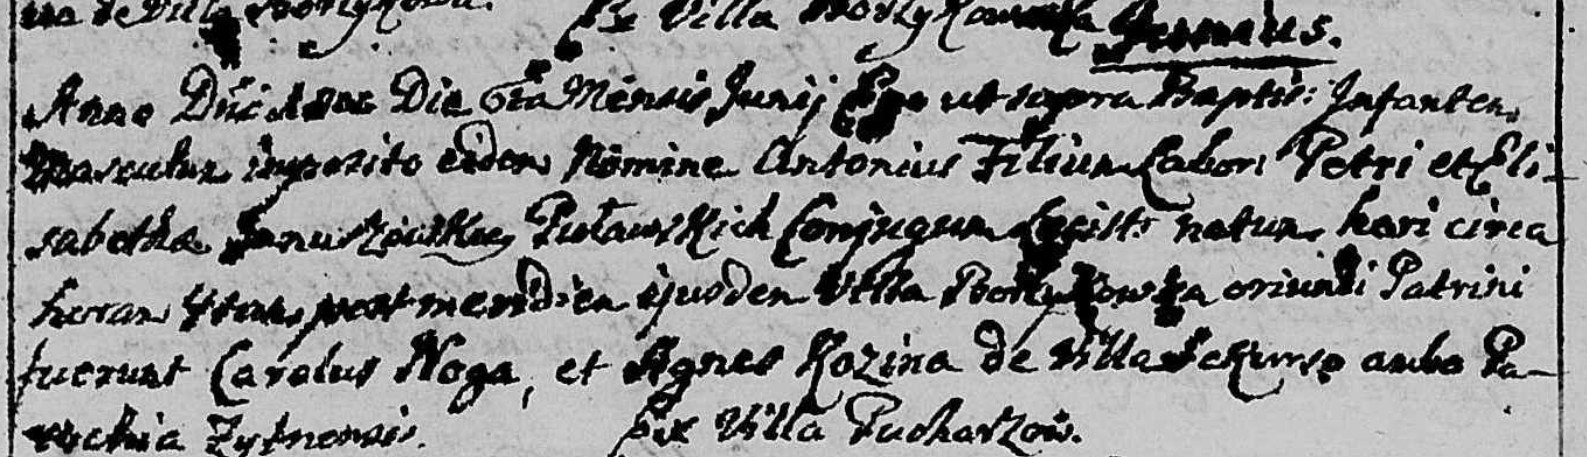 de Villa Ex Villa Borzykowa Januarius.
Anno Dni Die 6ta Mensis Junij Ego ut supra Baptis: Infantem
Masculum imposito eidem Nomine Antonius Filium Labori Petri et Eli-
sabetha Puławskich Conjugum Legist: natum heri circa
horam 4tam post meridiem ejusdem Villa oriundi Patrini
fuerunt Carolus Noga, et Agnes Kozina de Villa Sekursko ambo Pa-
rochia Zytnensis. Ex Villa Pucharzów.